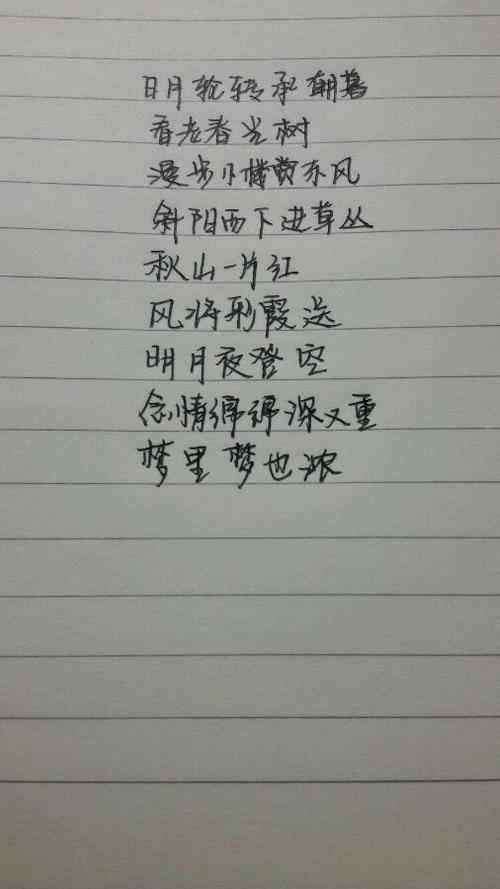 日月轮转承朝暮
看老春光树
漫步小楼黄东风
斜阳西下进草丛
秋山一片红
风将彩霞送
明月夜登空
念情绵绵深又重
梦里梦也浓